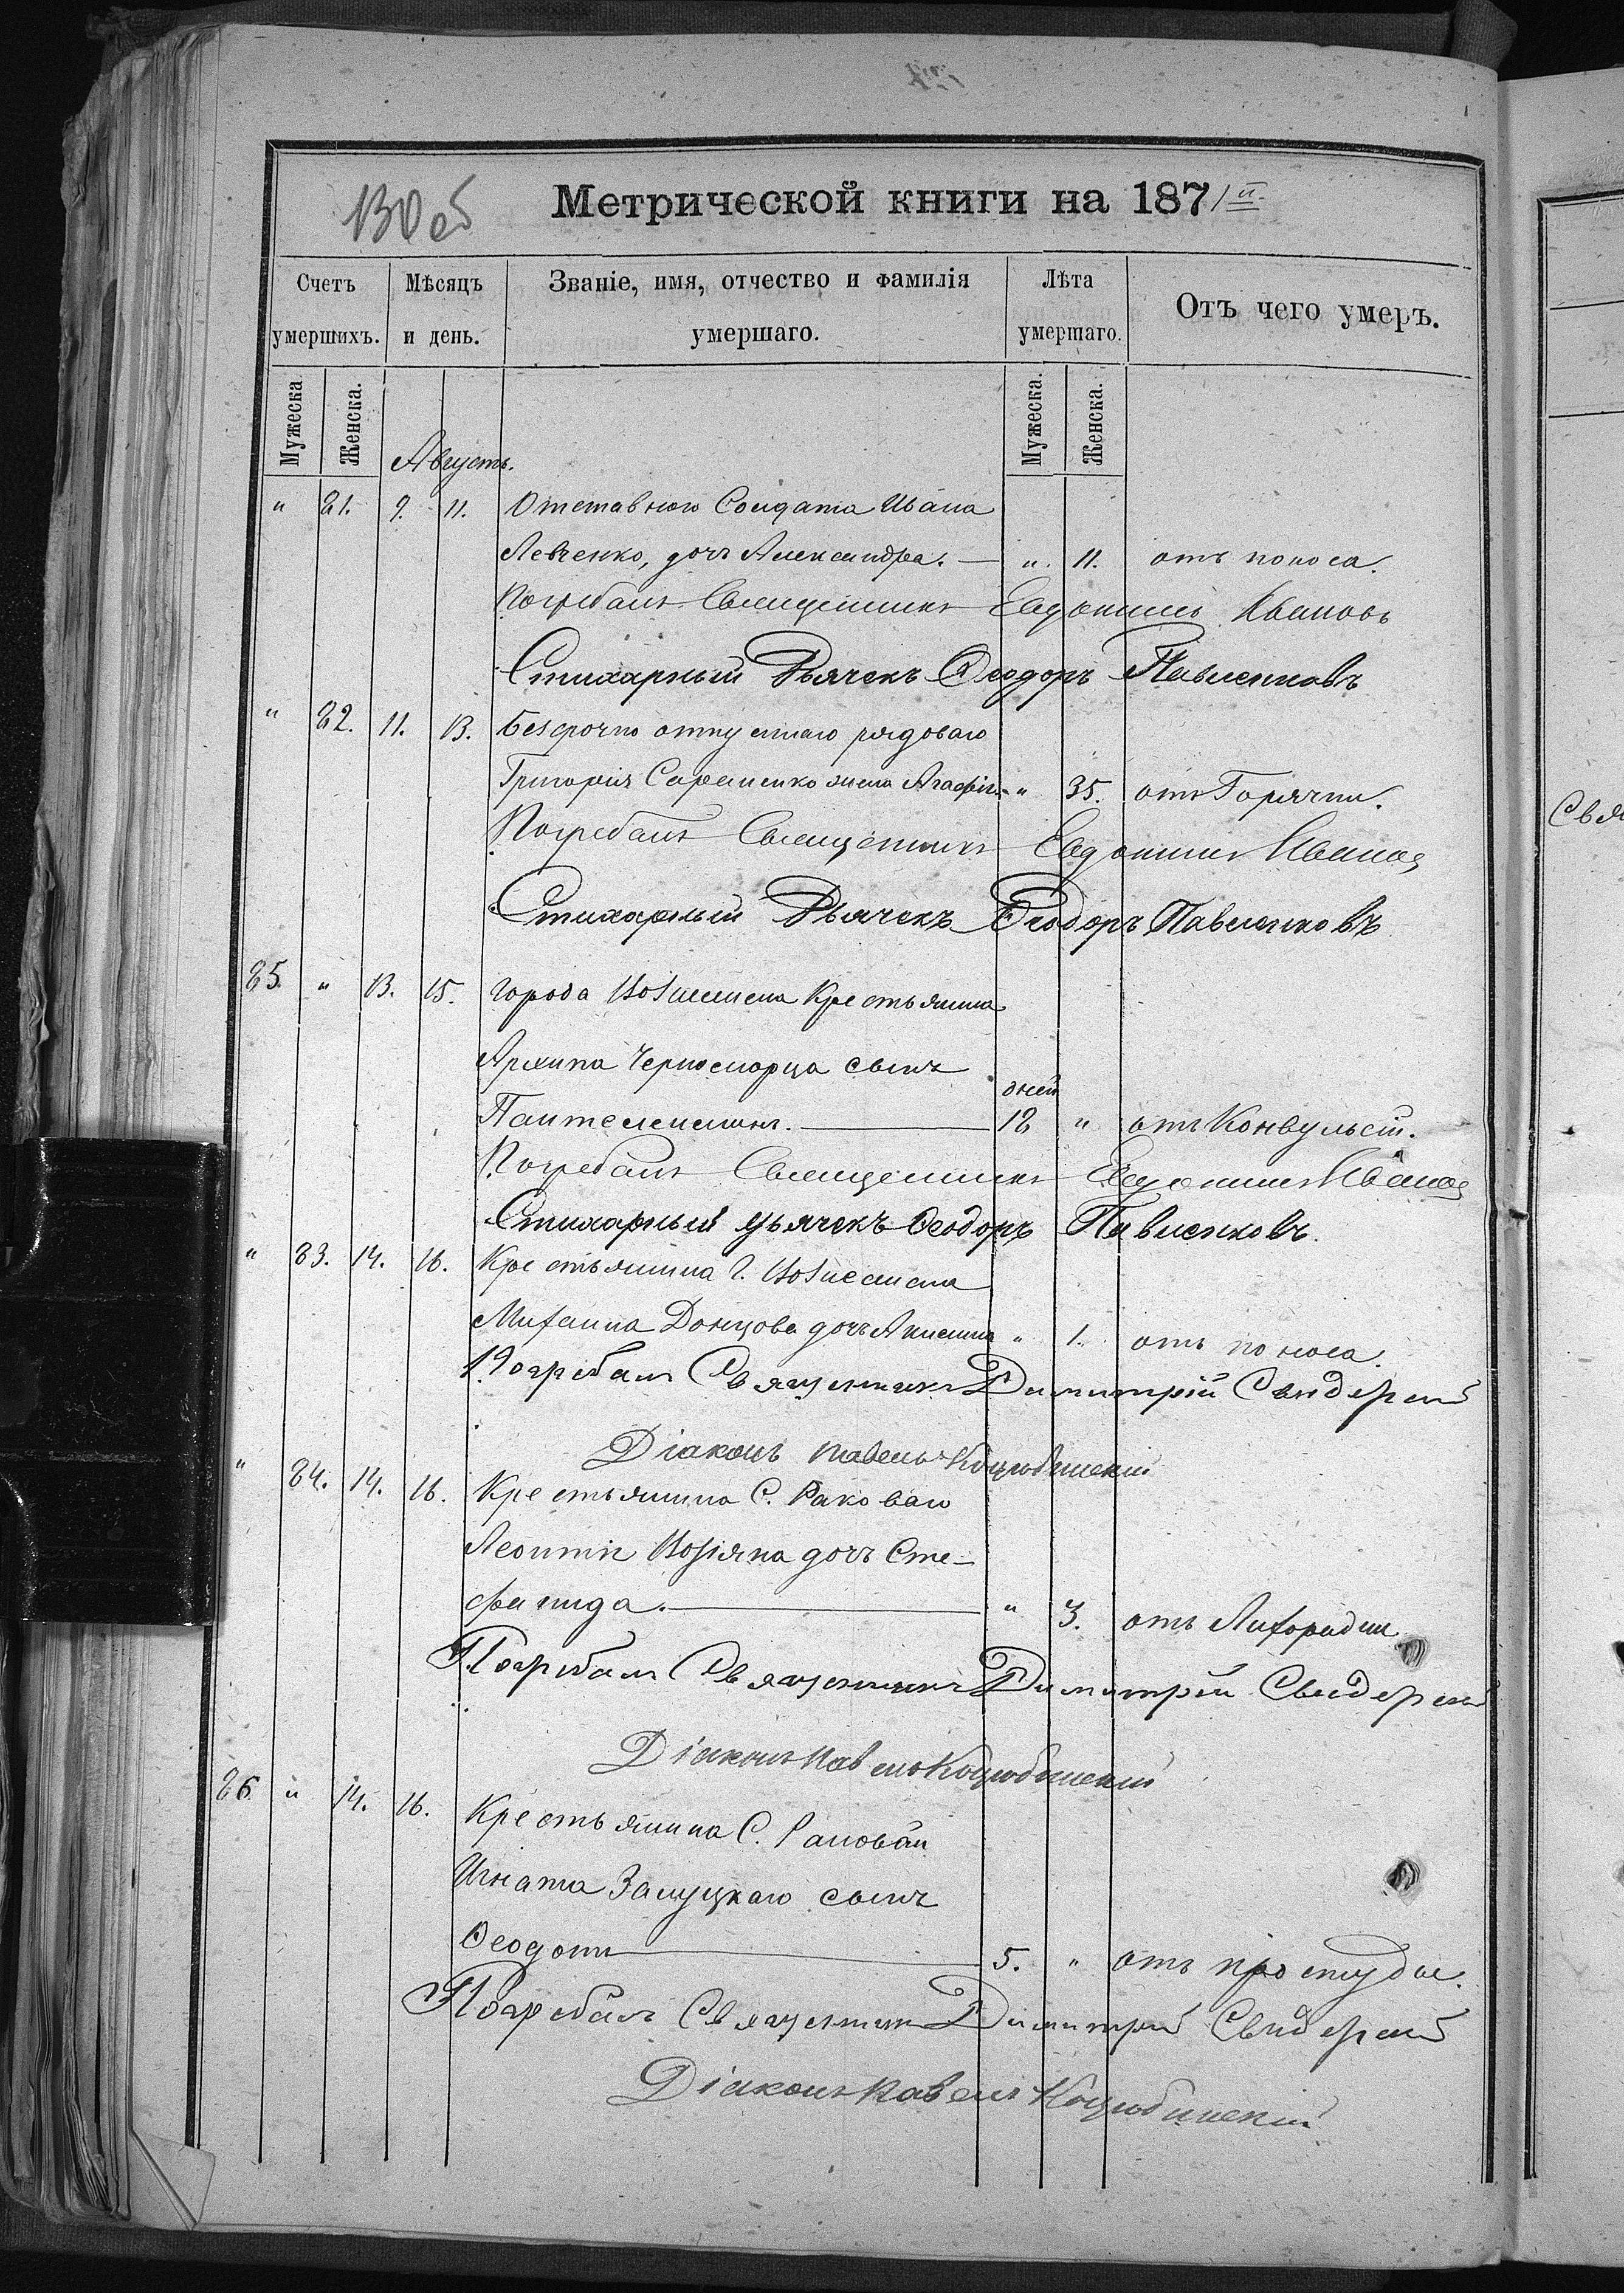 130 об
Метрической книги на 1871й.
Счетъ умершихъ.
Мѣсяцъ и день.
Званіе, имя, отчество и фамилія умершаго.
Лѣта умершаго.
Отъ чего умеръ.
Мужеска
Женска.
Мужеска.
Женска.
Августъ.
" 81. 9. 11. Отставного Солдата Ивана
Левченко, дочь Александра. — " 11. отъ поноса.
Погребалъ Священникъ Евдокимъ Ивановъ
Стихарный Дьячекъ Ѳеодоръ Павленковъ
" 82. 11. 13. Безсрочно отпускнаго рядоваго
Григорія жена Агафія " 35. отъ Горячки.
Погребалъ Священникъ Евдокимъ Ивановъ
Стихарный Дьячекъ Ѳеодоръ Павленковъ
85. " 13. 15. города Вознесенска Крестьянина
Архипа Черноморца сынъ
дней
Пантелеимонъ. — 18 " отъ Конвульсій.
Погребалъ Священникъ Евдокимъ Ивановъ
Стихарный Дьячекъ Ѳеодоръ Павленковъ.
" 83. 14. 16. Крестьянина г. Вознесенска
Михаила Донцова дочь Акилина " 1. отъ поноса.
Погребалъ Священникъ Димитрій
Діаконъ Павелъ Коцюбинскій
" 84. 14. 16. Крестьянина С. Раковаго
Леонтія Возіяна дочь Сте-
фанида. — " 3. отъ Лихорадки.
Погребалъ Священникъ Димитрій
Діаконъ Павелъ Коцюбинскій
86. " 14. 16. Крестьянина С.
Игната Залуцкаго сынъ
Ѳеодотъ — 5. " отъ простуды.
Погребалъ Священникъ Димитрій
Діаконъ Павелъ Коцюбинскій
Свя